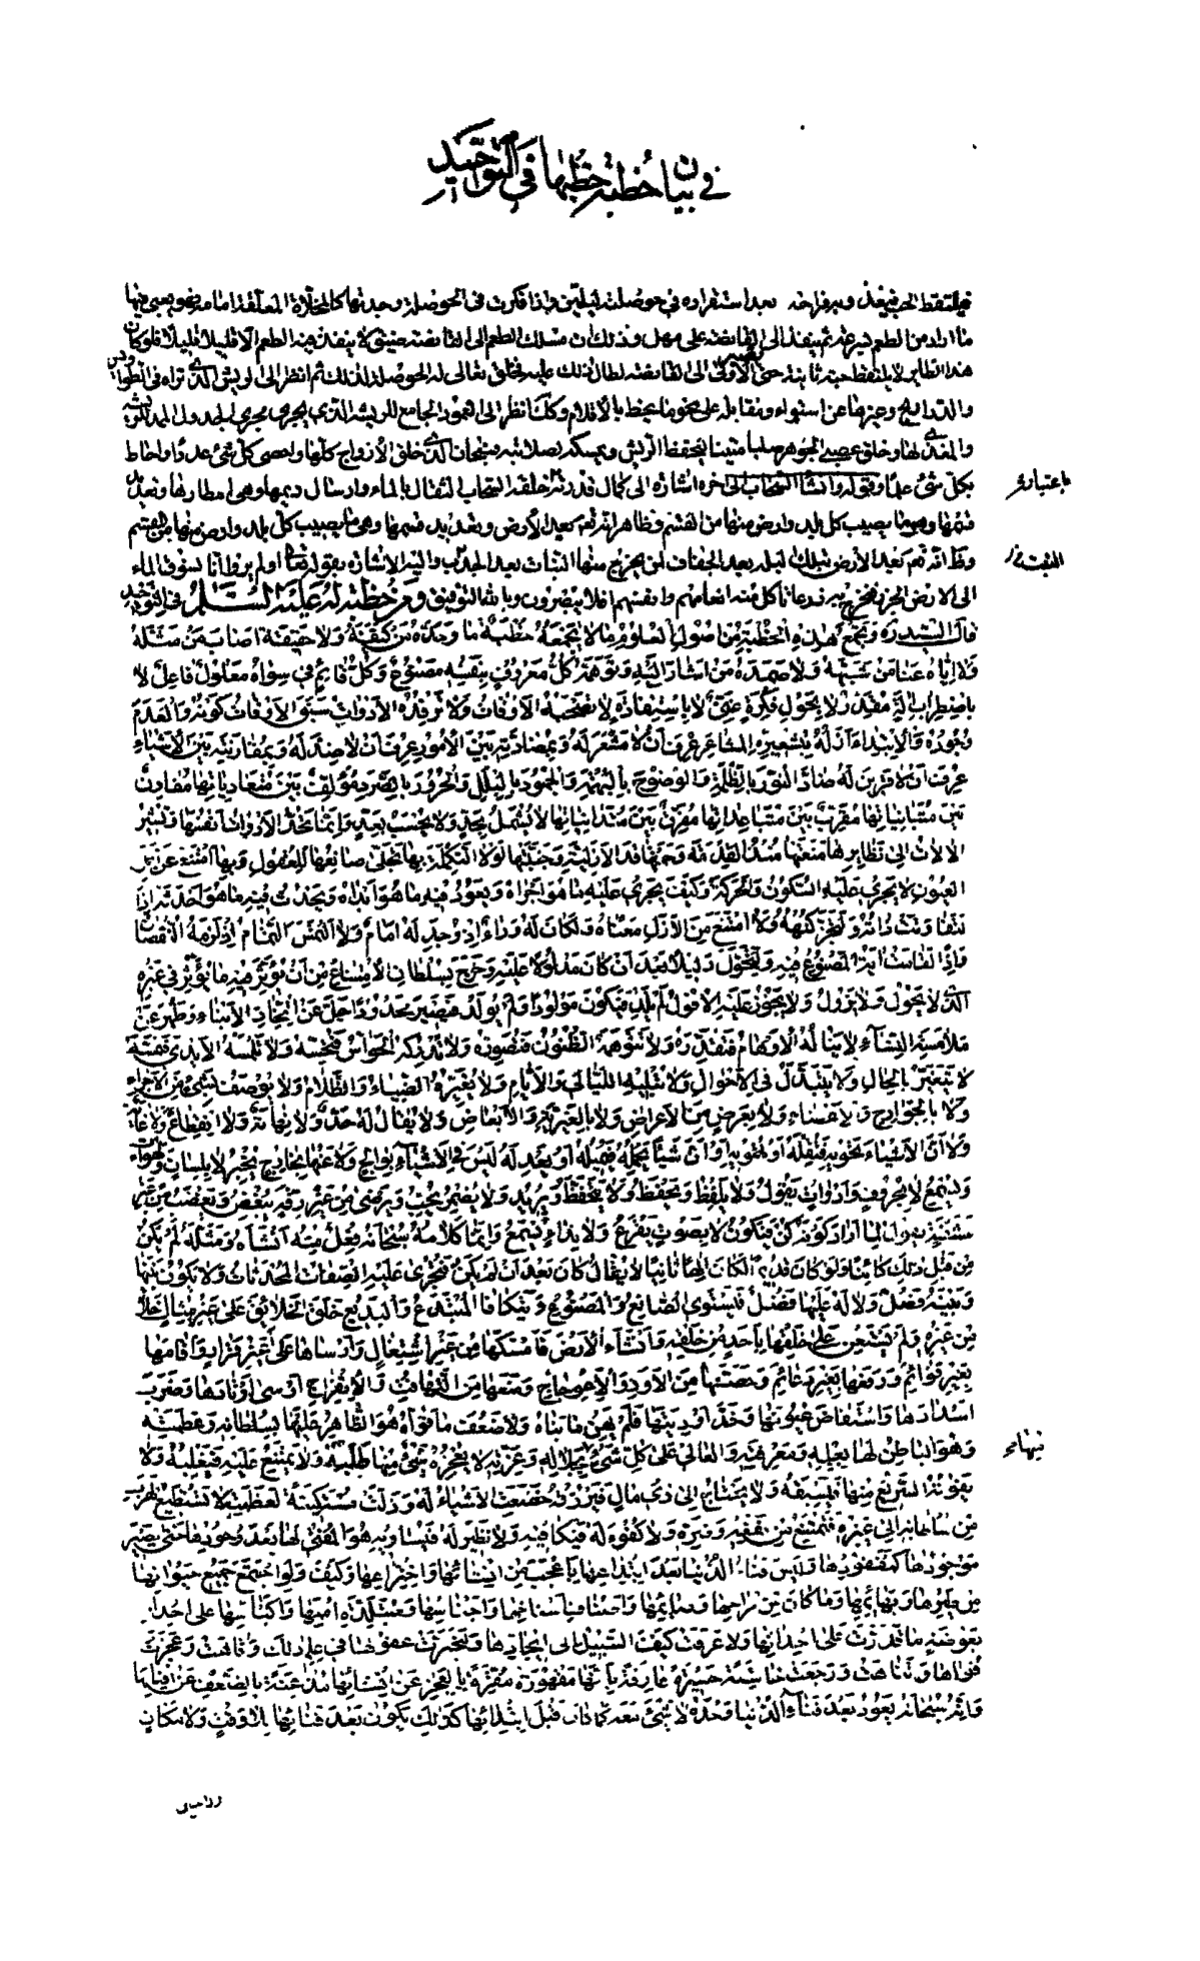 في بيان خطبة خطبها في التوحيد
فيلتقط الحب فيغذي وبه فراخه بعد استقراره في حوصلته ليلين واذا فكرت في الحوصلة وجدتها كالمخلاة المعلقة امامه فهو يعبي فيها
ما اراد من الطعم بسرعة ثم ينفذ الى القانصة على مهل وذلك ان مسلك الطعم الى القانصة ضيق لا ينفذ فيه الطعم الا قليلا قليلا فلو كان
هذا الطاير لا يلتقط حبة ثانية حتى تصير الاولى الى القانصة لطال ذلك عليه فخلق تعالى له الحوصلة لذلك ثم انظر الى الريش الذي تراه في الطواويس
والدراريج وغيرها عن استواء ومقابلة على نحو ما يخط بالاقلام وكك انظر الى العمود الجامع للريشة الذي يجري مجرى الجدول الممد للريشة
والمغذي لها وخلق عصبي الجوهر صلبا متينا ليحفظ الريش ويمسكه لصلابته فسبحان الذي خلق الازواج كلها واحصى كل شئ عددا واحاط
بكل شئ علما وقوله وانشا السحاب الى اخره اشارة الى كمال قدرته باعتبار خلقة السحاب الثقال بالماء وارسال ديمها وهي امطارها وتعديد
قسمها وهو ما يصيب كل بلد وارض منها من القسم وظاهر انه تع يعيد الارض وتعديد قسمها وهي ما يصيب كل بلد وارض منها من القسم
وظ انه تعم يعد الارض بتلك البلة بعد الجفاف لان يخرج منها النبات بعد الجدب واليه الاشارة بقوله تعا اولم يروا انا نسوق الماء
الى الارض الجرز فنخرج به زرعا تاكل منه انعامهم وانفسهم افلا يبصرون وبالله التوفيق ومن خطبة له عليه السلم في التوحيد
قال السيد ره وتجمع هذه الخطبة من اصول العلوم ما لا تجمعه خطبة ما وحده من كيفه ولا حقيقته اصاب من مثله
ولا اياه عنا من شبهه ولا صمده من اشار اليه وتوهمه كل معروف بنفسه مصنوع وكل قائم في سواه معلول فاعل لا
باضطراب الة مقدر لا بجول فكرة غني لا باستفادة لا تصحبه الاوقات ولا ترفده الادوات سبق الاوقات كونه والعدم
وجوده والابتداء ازله بتشعيره المشاعر عرف ان لا مشعر له وبمضادته بين الامور عرف ان لا ضد له وبمقارنته بين الاشياء
عرف ان لا قرين له ضاد النور بالظلمة والوضوح بالبهمة والجمود بالبلل والحرور بالصرد مؤلف بين متعادياتها مقارن
بين متبايناتها مقرب بين متباعداتها مفرق بين متدانياتها لا يشمل بحد ولا يحسب بعد وانما تحد الادوات انفسها وتشير
الالات الى نظايرها منعتها منذ القدمة وحمتها قد الازلية وجنبتها لولا التكملة بها تجلى صانعها للعقول وبها امتنع عن نظر
العيون لا يجري عليه السكون والحركة وكيف يجري عليه ما هو اجراه ويعود فيه ما هو ابداه ويحدث فيه ما هو احدثه اذا
لتفاوتت ذاته ولتجزء كنهه ولا امتنع من الازل معناه ولكان له وراء اذ وجد له امام ولا التمس التمام اذ لزمه النقصان
واذا لقامت اية المصنوع فيه ولتحول دليلا بعد ان كان مدلولا عليه وخرج بسلطان الامتناع من ان يؤثر فيه ما يؤثر في غيره
الذي لا يحول ولا يزول ولا يجوز عليه الافول لم يلد فيكون مولودا ولم يولد فيصير محدودا جل عن اتخاذ الابناء وطهر عن
ملامسة النساء لا تناله الاوهام فتقدره ولا تتوهمه الظنون فتصوره ولا تدركه الحواس فتحسه ولا تلمسه الايدي فتمسه
لا يتغير بالحال ولا يتبدل في الاحوال ولا تبليه الليالي والايام ولا يغيره الضياء والظلام ولا يوصف بشئ من الاجزاء
ولا بالجوارح والاعضاء ولا بعرض من الاعراض ولا بالغيرية والابعاض ولا يقال له حد ولا نهاية ولا انقطاع ولا غاية
ولا ان الاشياء تحويه فتقله او تهويه او ان شيئا يحمله فيميله او يعدله ليس في الاشياء بوالج ولا عنها بخارج يخبر لا بلسان ولهوات
ويسمع لا بخروق وادوات يقول ولا يلفظ ويحفظ ولا يتحفظ ويريد ولا يضمر يحب ويرضى من غير رقة يبغض ويغضب من غير
مشقة يقول لما اراد كونه كن فيكون لا بصوت يقرع ولا نداء يسمع وانما كلامه سبحانه فعل منه انشاه ومثله لم يكن
من قبل ذلك كائنا ولو كان قديما لكان الها ثانيا لا يقال كان بعد ان لم يكن فتجري عليه الصفات المحدثات ولا يكون بينها
وبينه فصل ولا له عليها فضل فيستوي الصانع والمصنوع ويتكافا المبتدع والبديع خلق الخلائق على غير مثال خلا
من غيره ولم يستعن على خلقها باحد من خلقه وانشاء الارض فامسكها من غير اشتغال وارساها على غير قرار واقامها
بغير قوائم ورفعها بغير دعائم وحصنها من الاود والاعوجاج ومنعها من التهافت والانفراج ارسى اوتادها وضرب
اسدادها واستفاض عيونها وخد اوديتها فلم يهن ما بناه ولا ضعف ما قواه هو الظاهر عليها بسلطانه وعظمته
وهو الباطن لها بعلمه ومعرفته والعالي على كل شئ منها بجلاله وعزته لا يعجزه شئ منها طلبه ولا يمتنع عليه فيغلبه ولا
يفوته السريع منها فيسبقه ولا يحتاج الى ذي مال فيرزقه خضعت الاشياء له وذلت مستكينة لعظمته لا تستطيع الهرب
من سلطانه الى غيره فتمتنع من نفعه وضره ولا كفؤ له فيكافيه ولا نظير له فيساويه هو المفني لها بعد وجودها حتى يصير
موجودها كمفقودها وليس فناء الدنيا بعد ابتداعها باعجب من انشائها واختراعها وكيف ولو اجتمع جميع حيوانها
من طيرها وبهائمها وما كان من مراحها وسائمها واصناف اسناخها واجناسها ومتبلدة اممها واكياسها على احداث
بعوضة ما قدرت على احداثها ولا عرفت كيف السبيل الى ايجادها ولتحيرت عقولها في علم ذلك وتاهت وعجزت
قواها وتناهت ورجعت خاسئة حسيرة عارفة بانها مقهورة مقرة بالعجز عن انشائها مذعنة بالضعف عن افنائها
وانه سبحانه يعود بعد فناء الدنيا وحده لا شئ معه كما كان قبل ابتدائها كذلك يكون بعد فنائها بلا وقت ولا مكان
ولا حين